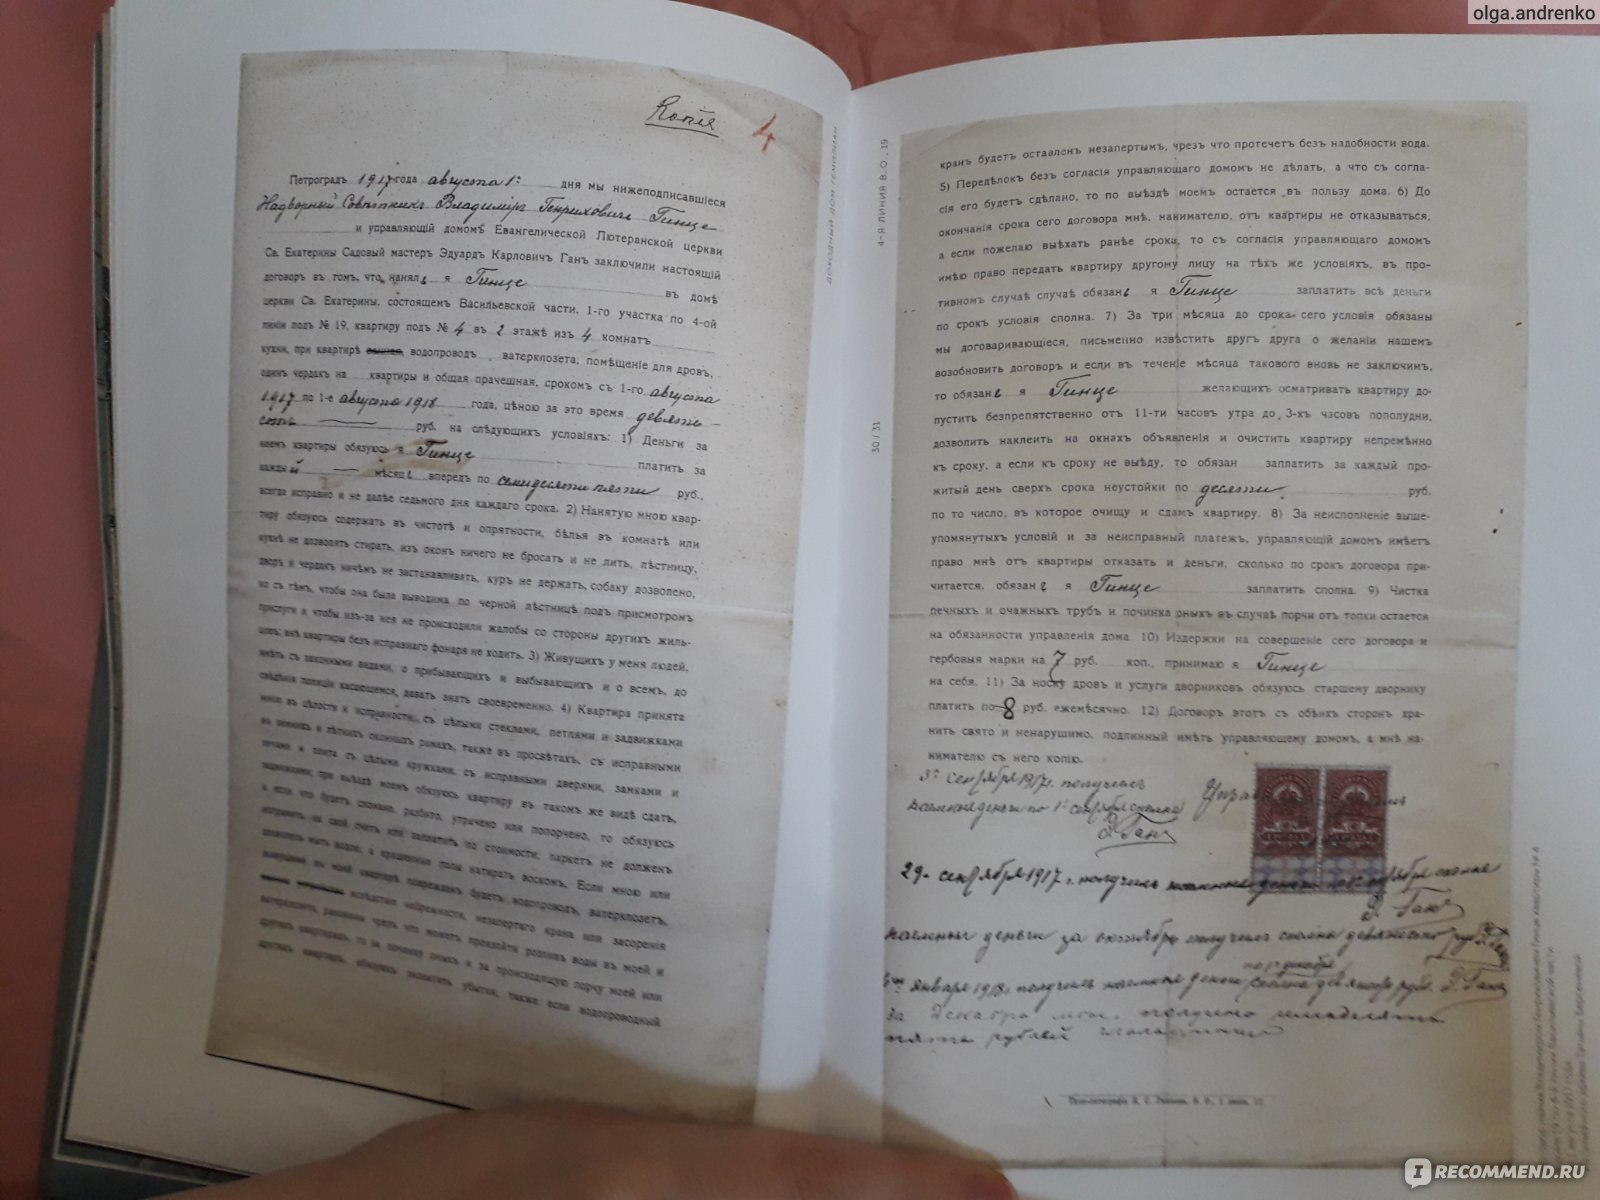 olga.andrenko
Копiя
4
Петроградъ 1917 года августа 1: дня мы нижеподписавшіеся
Надворный Совѣтникъ Владимiръ Генриховичъ Гинце
и управляющій домомъ Евангелической Лютеранской церкви
Св. Екатерины Садовый мастеръ Эдуардъ Карловичъ Ганъ заключили настоящій
договоръ въ томъ, что, нанялъ я Гинце въ домѣ
церкви Св. Екатерины, состоящемъ Васильевской части, 1-го участка по 4-ой
линіи подъ № 19, квартиру подъ № 4 въ 2 этажѣ изъ 4 комнатъ
кухни, при квартирѣ водопроводъ ватерклозета, помѣщеніе для дровъ,
одинъ чердакъ на квартиры и общая прачешная, срокомъ съ 1-го августа
1917 по 1-е августа 1918 года, цѣною за это время девять-
сотъ руб. на слѣдующихъ условіяхъ: 1) Деньги за
наемъ квартиры обязуюсь я Гинце платить за
каждый мѣсяцъ впередъ по семидесяти пяти руб.,
всегда исправно и не далѣе седьмого дня каждаго срока. 2) Нанятую мною квар-
тиру обязуюсь содержать въ чистотѣ и опрятности, бѣлья въ комнатѣ или
кухнѣ не дозволять стирать, изъ оконъ ничего не бросать и не лить, лѣстницу,
дворъ и чердакъ ничѣмъ не застанавливать, куръ не держать, собаку дозволено,
но съ тѣмъ, чтобы она была выводима по черной лѣстницѣ подъ присмотромъ
прислуги и чтобы изъ-за нея не происходили жалобы со стороны другихъ жиль-
цовъ; внѣ квартиры безъ исправнаго фонаря не ходить. 3) Живущихъ у меня людей,
имѣть съ законными видами, о прибывающихъ и выбывающихъ и о всемъ, до
свѣдѣнія полиціи касающемся, давать знать своевременно. 4) Квартира принята
мною въ цѣлости и исправности, съ цѣлыми стеклами, петлями и задвижками
въ зимнихъ и лѣтнихъ оконныхъ рамахъ, также въ просвѣтахъ, съ исправными
печами и плита съ цѣлыми кружками, съ исправными дверями, замками и
задвижками; при выѣздѣ моемъ обязуюсь квартиру въ такомъ же видѣ сдать,
а если что будетъ сломано, разбито, утрачено или попорчено, то обязуюсь
исправить на свой счетъ или заплатить по стоимости; паркетъ не долженъ
дозволять мыть водою, а крашенные полы натирать воскомъ. Если мною или
живущими въ моей квартирѣ поврежденъ будетъ водопроводъ, ватерклозетъ,
вслѣдствіе небрежности, незапертаго крана или засоренія
ватерклозета, раковины чрезъ что можетъ произойти розливъ воды въ моей и
другихъ квартирахъ, то за починку оныхъ и за происходящую порчу моей или
другихъ квартиръ, обязуюсь заплатить убытки, также если водопроводный
ДОХОДНЫЙ ДОМ ГЕМИЛИАН
4-Я ЛИНИЯ В.О., 19
30 / 31
кранъ будетъ оставленъ незапертымъ, чрезъ что протечетъ безъ надобности вода.
5) Передѣлокъ безъ согласія управляющаго домомъ не дѣлать, а что съ согла-
сія его будетъ сдѣлано, то по выѣздѣ моемъ остается въ пользу дома. 6) До
окончанія срока сего договора мнѣ, нанимателю, отъ квартиры не отказываться,
а если пожелаю выѣхать ранѣе срока, то съ согласія управляющаго домомъ
имѣю право передать квартиру другому лицу на тѣхъ же условіяхъ, въ про-
тивномъ случаѣ случаѣ обязанъ я Гинце заплатить всѣ деньги
по срокъ условія сполна. 7) За три мѣсяца до срока сего условія обязаны
мы договаривающіеся, письменно извѣстить другъ друга о желаніи нашемъ
возобновить договоръ и если въ теченіе мѣсяца таковаго вновь не заключимъ,
то обязанъ я Гинце желающихъ осматривать квартиру до-
пустить безпрепятственно отъ 11-ти часовъ утра до 3-хъ часовъ пополудни,
дозволить наклеить на окнахъ объявленія и очистить квартиру непремѣнно
къ сроку, а если къ сроку не выѣду, то обязан заплатить за каждый про-
житый день сверхъ срока неустойки по десяти руб.
по то число, въ которое очищу и сдамъ квартиру. 8) За неисполненіе выше-
упомянутыхъ условій и за неисправный платежъ, управляющій домомъ имѣетъ
право мнѣ отъ квартиры отказать и деньги, сколько по срокъ договора при-
читается, обязанъ я Гинце заплатить сполна. 9) Чистка
печныхъ и очажныхъ трубъ и починка рныхъ въ случаѣ порчи отъ топки остается
на обязанности управленія дома. 10) Издержки на совершеніе сего договора и
гербовыя марки на 7 руб. коп., принимаю я Гинце
на себя. 11) За носку дровъ и услуги дворниковъ обязуюсь старшему дворнику
платить по 8 руб. ежемѣсячно. 12) Договоръ этотъ съ обѣихъ сторонъ хра-
нить свято и ненарушимо, подлинный имѣть управляющему домомъ, а мнѣ на-
нимателю съ него копію.
3го сентября 1917 г. получилъ
наемные деньги по 1е сентября сполна
Э. Ганъ
29го сентября 1917 г. получилъ наемные деньги по 1е октября сполна
Э. Ганъ
Наемныя деньги за октябрь получилъ сполна девяносто руб. Э. Ганъ
по 1е декабря
января 1918 г. получилъ наемные деньги сполна девяносто руб. Э. Ганъ
За Декабрь мѣс. получено семьдесять
пять рублей
IRECOMMEND.RU